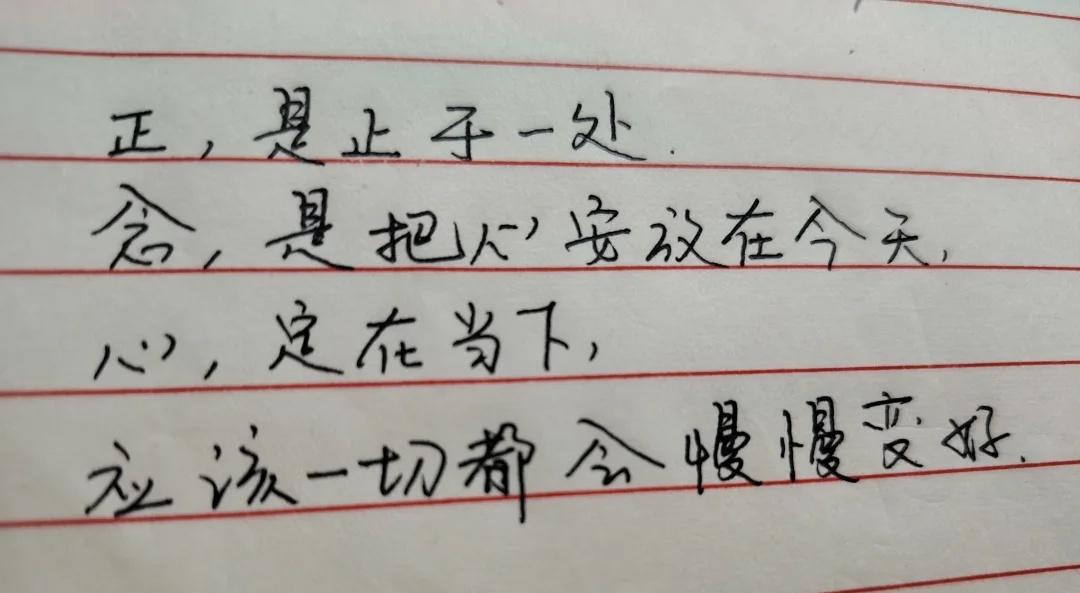 正，是止于一处.
念，是把心安放在今天，
心，定在当下，
应该一切都会慢慢变好.